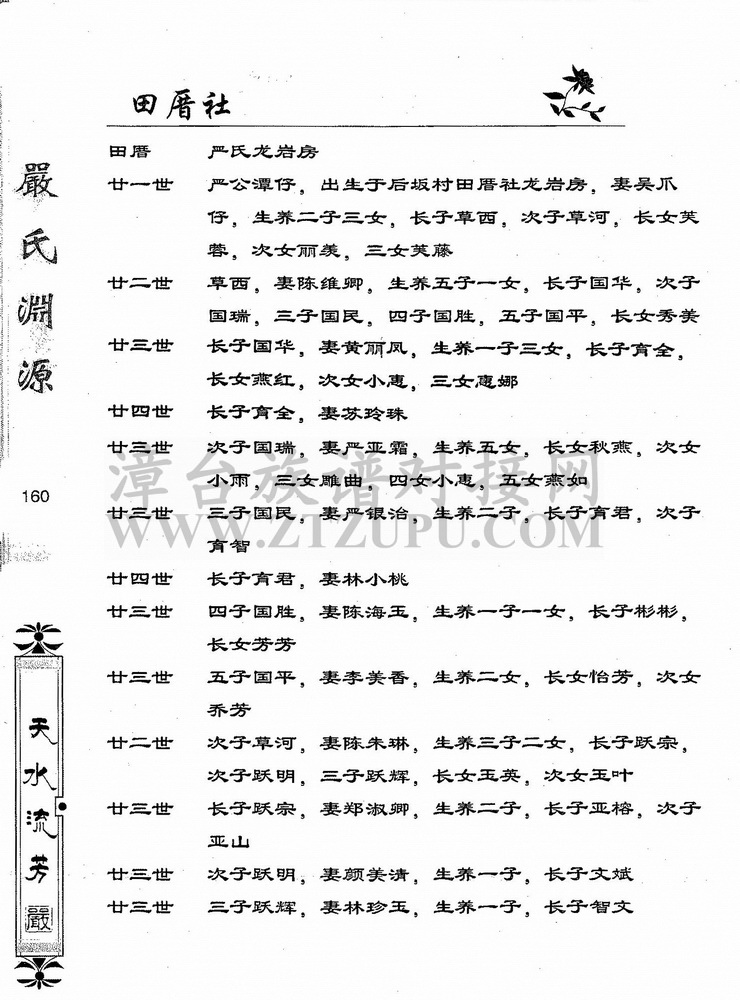 田厝社
嚴氏淵源
160
天水流芳
嚴
田厝 严氏龙岩房
廿一世 严公潭仔，出生于后坂村田厝社龙岩房，妻吴爪
仔，生养二子三女，长子草西，次子草河，长女芙
蓉，次女丽羡，三女芙藤
廿二世 草西，妻陈维卿，生养五子一女，长子国华，次子
国瑞，三子国民，四子国胜，五子国平，长女秀美
廿三世 长子国华，妻黄丽凤，生养一子三女，长子育全，
长女燕红，次女小惠，三女惠娜
廿四世 长子育全，妻苏玲珠
廿三世 次子国瑞，妻严亚霜，生养五女，长女秋燕，次女
小雨，三女雕曲，四女小惠，五女燕如
廿三世 三子国民，妻严银治，生养二子，长子育君，次子
育智
廿四世 长子育君，妻林小桃
廿三世 四子国胜，妻陈海玉，生养一子一女，长子彬彬，
长女芳芳
廿三世 五子国平，妻李美香，生养二女，长女怡芳，次女
乔芳
廿二世 次子草河，妻陈朱琳，生养三子二女，长子跃宗，
次子跃明，三子跃辉，长女玉英，次女玉叶
廿三世 长子跃宗，妻郑淑卿，生养二子，长子亚榕，次子
亚山
廿三世 次子跃明，妻颜美清，生养一子，长子文斌
廿三世 三子跃辉，妻林珍玉，生养一子，长子智文
漳台族谱对接网
WWW.ZTZUPU.COM